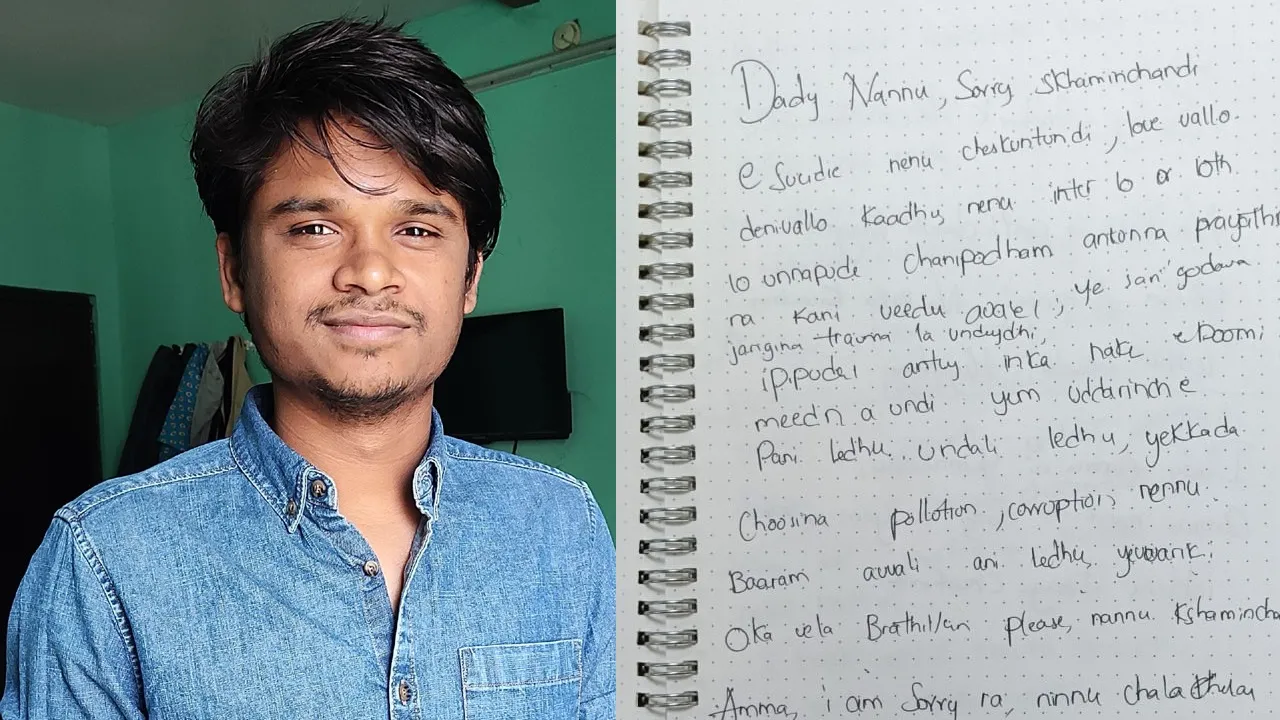 Dady Nannu, Sorry Skhaminchandi
e Sucidie nenu cheskuntundi, love vallo
denivallo Kaadhu, nenu inter lo or 10th
lo unnapude Chanipodham antonna
ra kani veedu ; ye sani godava
jarigina trauma la undydhi,
ippudu inka nake e boomi
meedn a undi yem Uddarinche
Pani ledhu. undali ledhu, yekkada
Choosina pollotion, corroption, nennu
Baaram avvali ani ledhu,
Oka vela Brathillani please, nannu Kshamincha
Amma, i am Sorry ra, ninnu chala